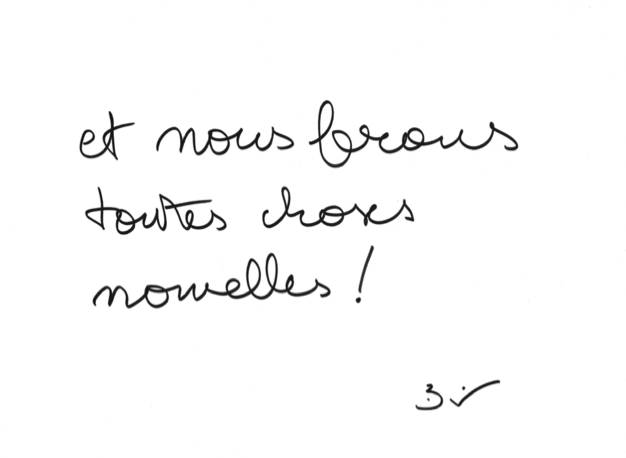 et nous ferons
toutes choses
nouvelles !